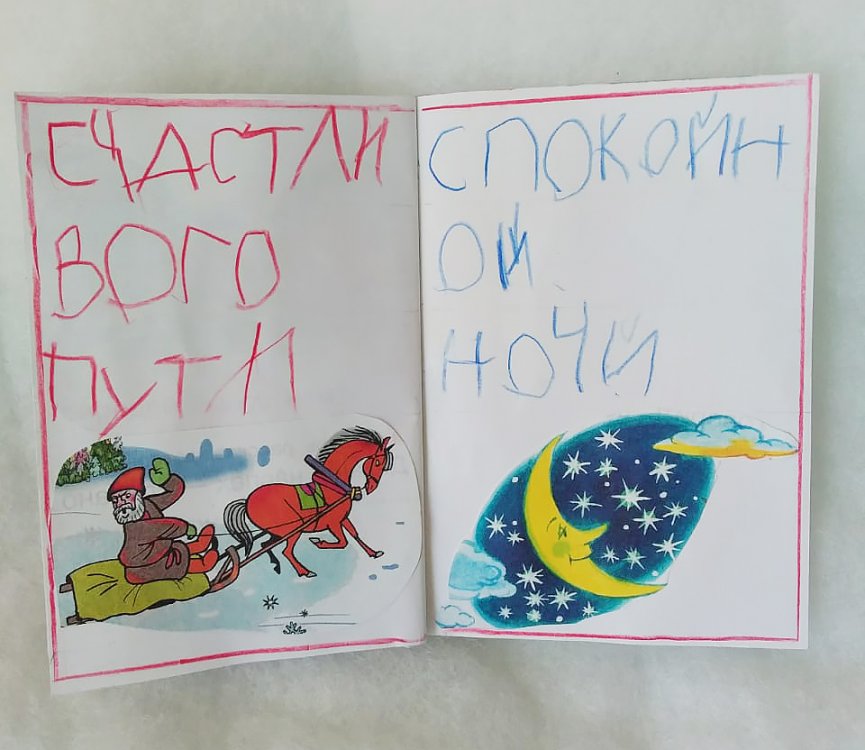 СЧАСТЛИ
ВОГО
ПУТИ
СПОКОЙН
ОЙ
НОЧИ